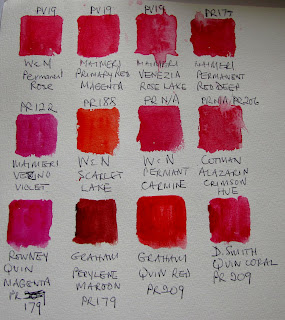 PV19 PV19 PV19 PR177
W&N MAIMERI MAIMERI MAIMERI
PERMANENT PRIMARY RED VENEZIA PERMANENT
ROSE MAGENTA ROSE LAKE RED DEEP
PR122 PR188 PR N/A PR N/A, PR206
MAIMERI W&N W&N COTMAN
VERZINO SCARLET PERMANT ALAZARIN
VIOLET LAKE CARMINE CRIMSON
HUE
ROWNEY GRAHAM GRAHAM D. SMITH
QUIN PERYLENE QUIN RED QUIN CORAL
MAGENTA MAROON PR209 PR209
PR PR179
179